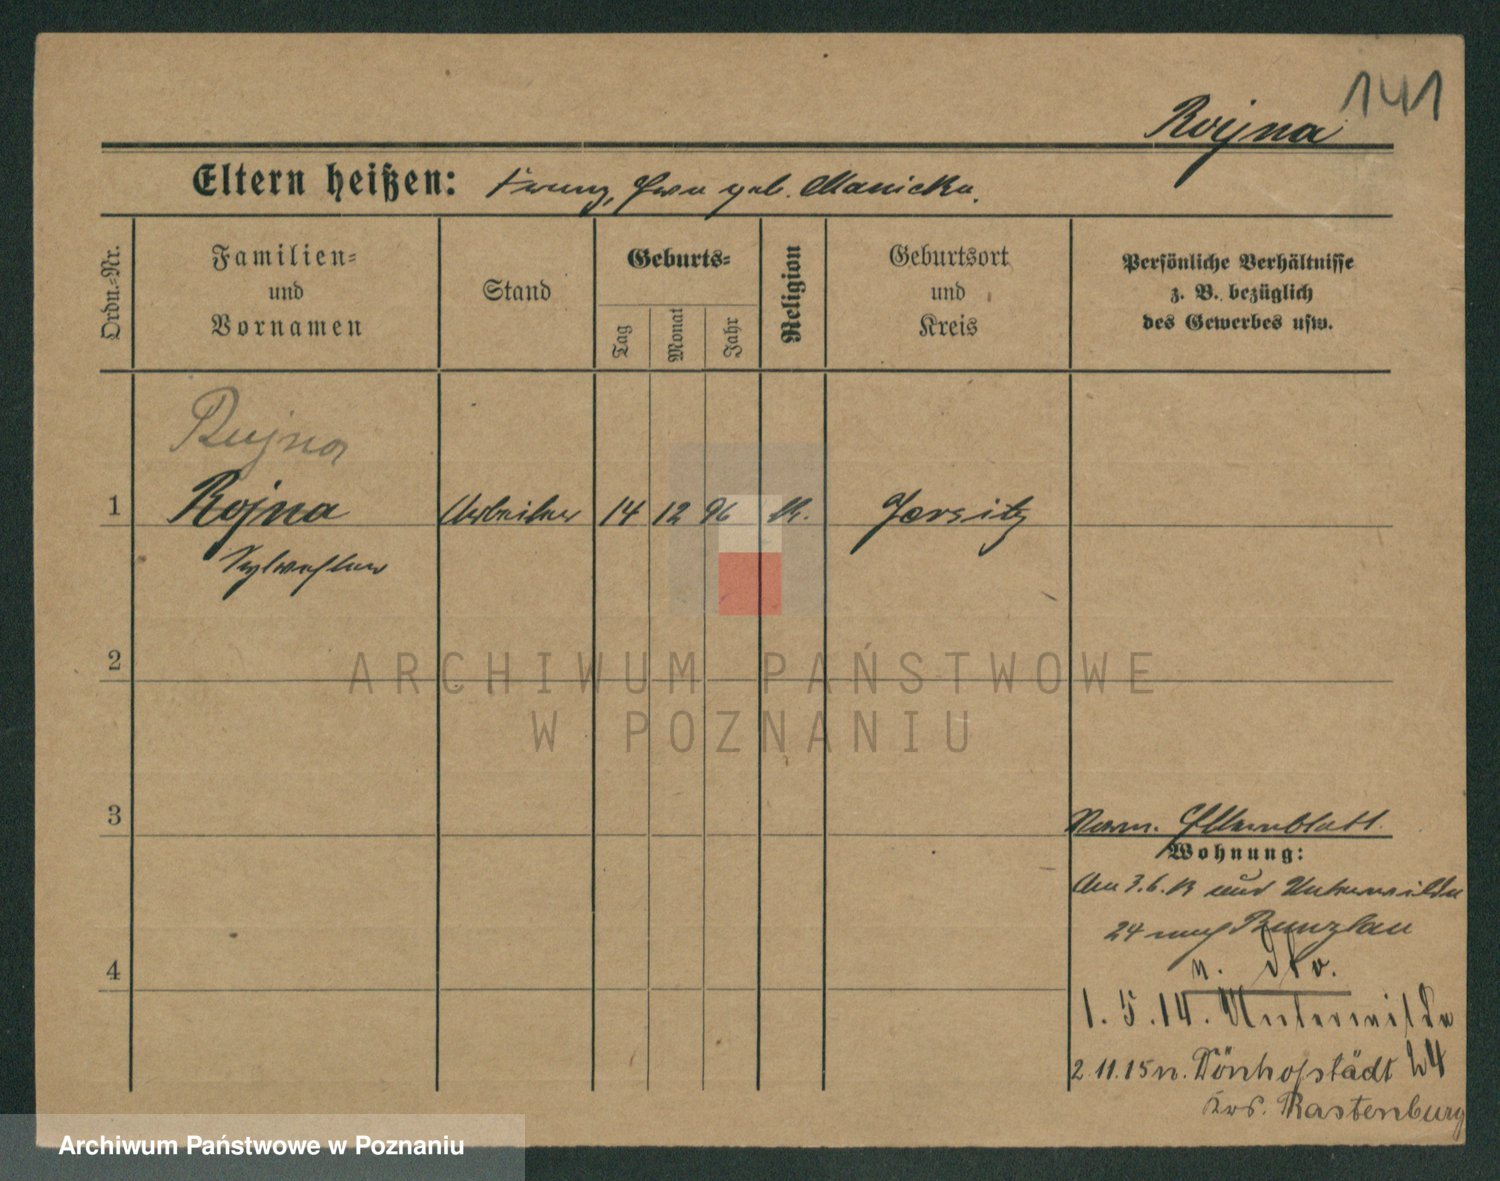 141
Rojna
Eltern heißen: Franz, Eva geb. Manicka.
Ordn.-Nr.
Familien-
und
Vornamen
Stand
Geburts-
Tag
Monat
Jahr
Religion
Geburtsort
und
Kreis
Persönliche Verhältnisse
z. B. bezüglich
des Gewerbes usw.
Rujna
1 Rojna Arbeiter 14 12 96 K. Jersitz
Sylwester
2
ARCHIWUM PAŃSTWOWE
W POZNANIU
3
Elternblatt.
Wohnung:
Am 3.6.13 Unterwilda
24 nach Bunzlau
1.5.14. Unterwilda
24
2.11.15 n. Dönhofstädt
Krs. Rastenburg
4
Archiwum Państwowe w Poznaniu